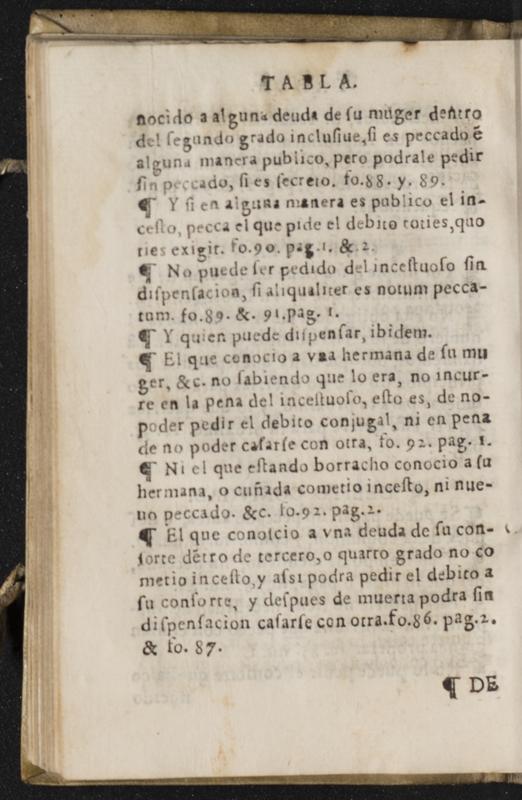 TABLA.
nocido a alguna deuda de ſu muger dentro
del ſegundo grado incluſiue, ſi es peccado ẽ
alguna manera publico, pero podrale pedir
ſin peccado, ſi es ſecreto. fo.88. y. 89.
¶ Y ſi en alguna manera es publico el in-
ceſto, pecca el que pide el debito toties, quo
ties exigit. fo.90. pag.1. &.2.
¶ No puede ſer pedido del inceſtuoſo ſin
diſpenſacion, ſi aliqualiter es notum pecca-
tum. fo.89. &. 91.pag. 1.
¶ Y quien puede diſpenſar, ibidem.
¶ El que conocio a vna hermana de ſu mu
ger, &c. no ſabiendo que lo era, no incur-
re en la pena del inceſtuoſo, eſto es, de no-
poder pedir el debito conjugal, ni en pena
de no poder caſarſe con otra, fo. 92. pag. 1.
¶ Ni el que eſtando borracho conocio a ſu
hermana, o cuñada cometio inceſto, ni nue-
uo peccado. &c. fo.92. pag.2.
¶ El que conoſcio a vna deuda de ſu con-
ſorte dẽtro de tercero, o quarto grado no co
metio inceſto, y aſsi podra pedir el debito a
ſu conſorte, y deſpues de muerta podra ſin
diſpenſacion caſarſe con otra. fo.86. pag.2.
& fo. 87.
¶ DE